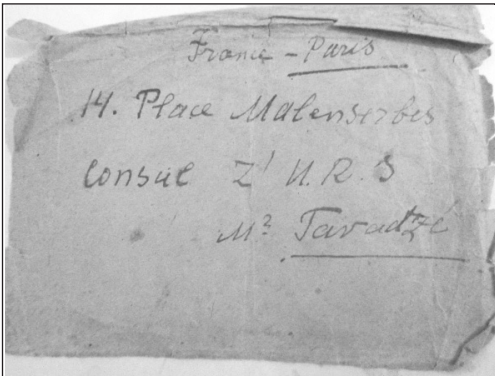 France - Paris
14. Place Malenserbes
Consul Z' U.R.S
Mr Tavadzé